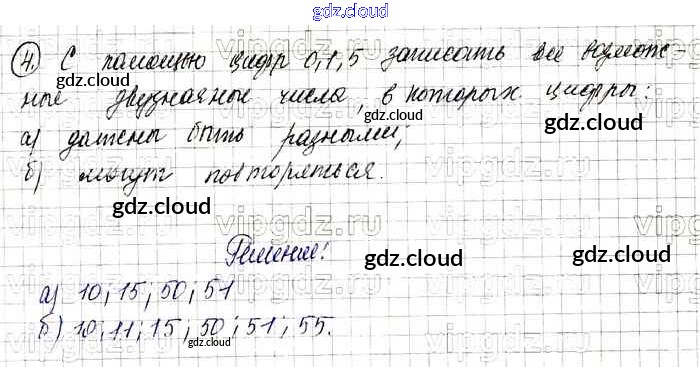 gdz.cloud
4. С помощью цифр 0,1,5 записать все возмож-
ные двузначные числа, в которых цифры:
gdz.cloud gdz.cloud
а) должны быть разными;
б) могут повторяться.
gdz.cloud
vipgdz.ru vipgdz.ru
Решение!
gdz.cloud gdz.cloud
а) 10; 15; 50; 51
б) 10; 11; 15; 50; 51; 55.
gdz.cloud gdz.cloud